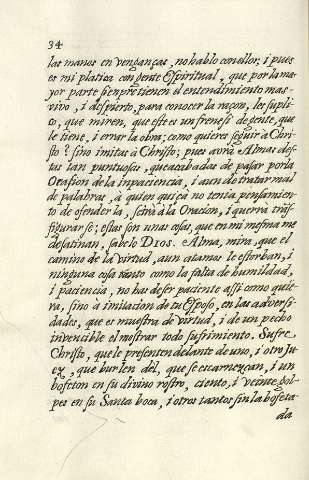 34
las manos en venganças, no hablo con ellos; i pues
es mi platica con gente Espiritual, que por la ma-
yor parte sienpre tienen el entendimiento mas
vivo, i despierto, para conocer la raçon, les supli-
co, que miren, que este es un frenesi de gente, que
le tiene, i errar la obra; como quieres seguir à Chri-
sto? sino imitas à Christo; pues avrà Almas des-
tas tan puntuosas, que acabadas de pasar por la
Ocasion de la inpaciencia, i aun do tratar mal
de palabras, à quien quiçà no tenia pensamien-
to de ofenderla, se irà a la Oracion, i querrà trãs-
figurarse; estas son unas cosas, que en mi mesma me
desatinan, sabelo DIOS. Alma, mira, que el
camino de la virtud, aun atamos le estorban, i
ninguna cosa tanto como la falta de humildad,
i paciencia, no has de ser paciente assi como quie-
ra, sino à imitacion de tu Esposo, en las adversi-
dades, que es muestra de virtud, i de un pecho
invencible el mostrar todo sufrimiento. Sufre
Christo, que le presenten delante de uno, i otro Ju-
ez, que burlen dèl, que se escarnezcan, i un
bofeton en su divino rostro, ciento, i veinte gol-
pes en su Santa boca, i otros tantos sin la bofeta-
da